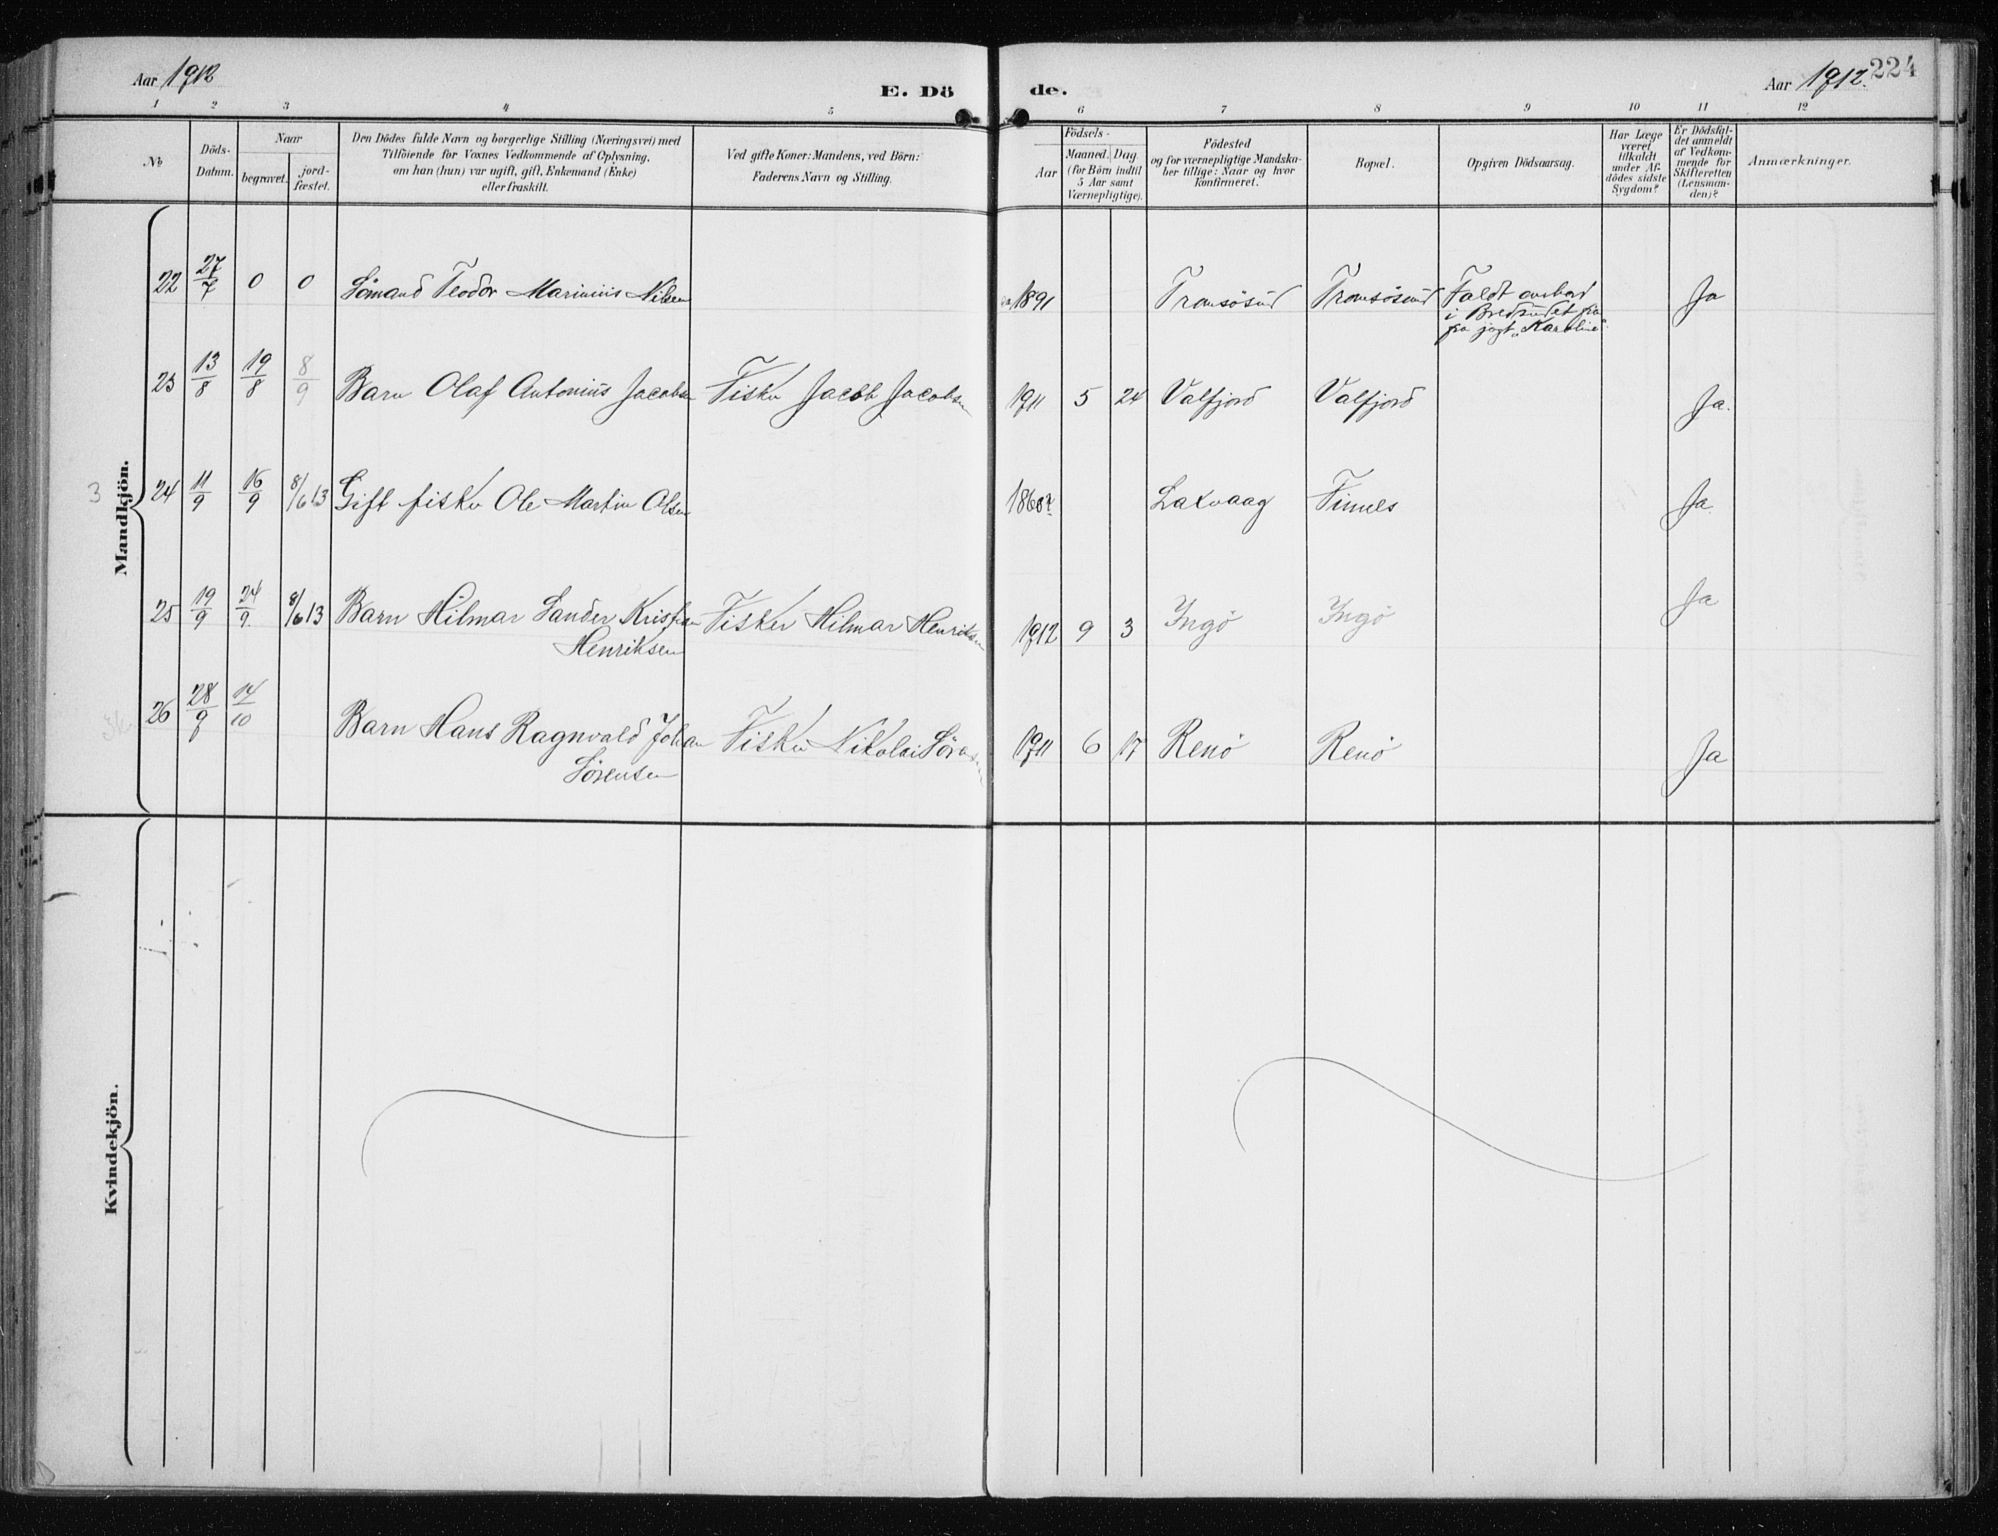 Aar 1912
E. Dö
de.
Aar 1912.
224
1 2 3 4 5 6 7 8 9 10 11 12
No
Döds-
Datum.
Naar
begravet.
jord-
fæstet.
Den Dödes fulde Navn og borgerlige Stilling (Næringsvei) med
Tilföiende for Voxnes Vedkommende af Oplysning,
om han (hun) var ugift, gift, Enkemand (Enke)
eller fraskilt.
Ved gifte Koner: Mandens, ved Börn:
Faderens Navn og Stilling.
Födsels-
Aar
Maaned. Dag
(for Börn indtil
5 Aar samt
Værnepligtige).
Födested
og for værnepligtige Mandska-
ber tillige: Naar og hvor
konfirmeret.
Bopæl.
Opgiven Dödsaarsag.
Har Læge
været
tilkaldt
under Af-
dödes sidste
Sygdom?
Er Dödsfal-
det anmeldt
af Vedkom-
mende for
Skifteretten
(Lensman-
den)?
Anmærkninger.
Mandkjön.
22 27/7 0 0 Sömand Teodor Marinius Nilsen 1891 Tromsösund Tromsösund Faldt overbord
i Bredsundet fra
fra jagt „Karoline“
Ja
23 13/8 19/8 8/9 Barn Olaf Antonius Jacobsen Fisker Jacob Jacobsen 1911 5 24 Valfjord Valfjord Ja.
3
24 11/9 16/9 8/6 13 Gift fisker Ole Martin Olsen 1860? Laxvaag Finnes Ja.
25 19/9 24/9 8/6 13 Barn Hilmar Sander Kristian
Henriksen
Fisker Hilmar Henriksen 1912 9 3 Ingö Ingö Ja
26 28/9 14/10 Barn Hans Ragnvald Johan
Sørensen
Fisker Nikolai Sörensen 1911 6 17 Renö Renö Ja
Kvindekjön.